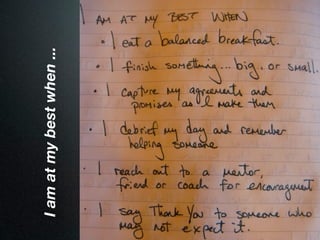 I am at my best when ...
I AM AT MY BEST WHEN
• I eat a balanced breakfast.
• I finish something... big. or small.
• I capture my agreements and
promises as I make them
• I debrief my day and remember
helping someone
• I reach out to a mentor,
friend or coach for encouragement
• I say Thank You to someone who
may not expect it.